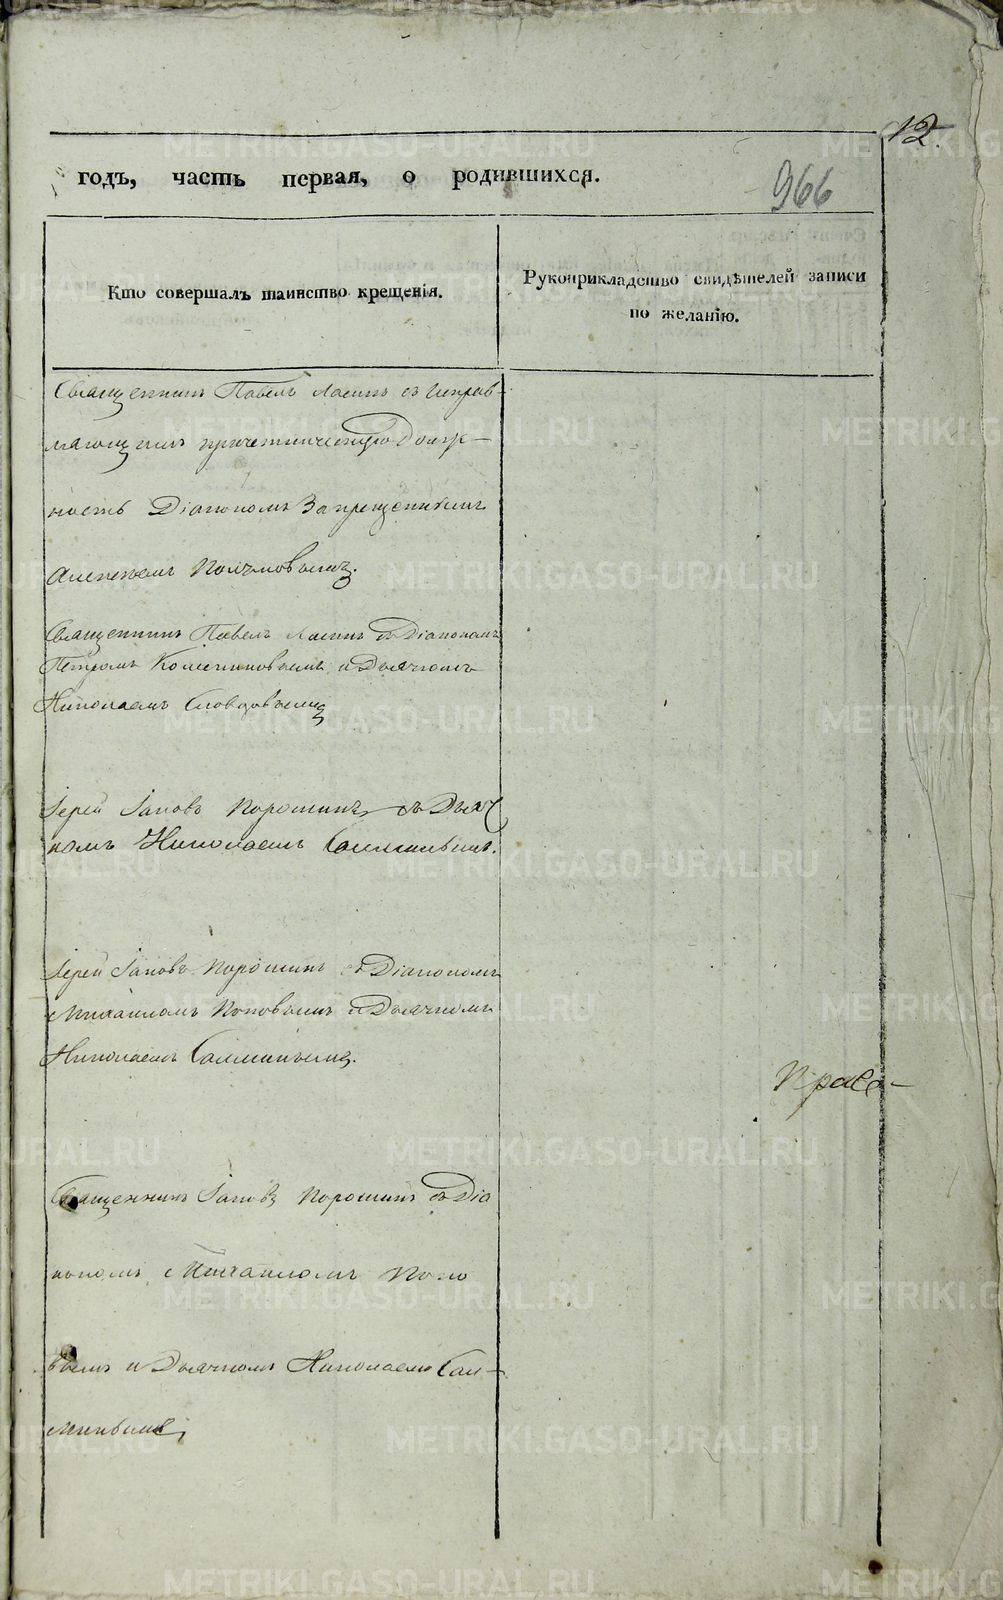 12.
годъ, часть первая, о родившихся.
966
Кто совершалъ таинство крещенія.
Рукоприкладство свидѣтелей записи
по желанію.
Священникъ Павелъ съ исправ-
ляющимъ причетническую долж-
ность Діакономъ Запрещеннымъ
Алексѣемъ
Священникъ Павелъ съ Діакономъ
Петромъ и Дьячкомъ
Николаемъ Словцовымъ
Іерей Іаковъ Порошинъ съ Дьяч
комъ Николаемъ
Іерей Іаковъ Порошинъ съ Діакономъ
Михаиломъ Поповымъ и Дьячкомъ
Николаемъ
Священникъ Іаковъ Порошинъ съ Діа
кономъ Михаиломъ Попо
вымъ и Дьячкомъ Николаемъ
METRIKI.GASO-URAL.RU